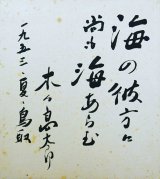 海の彼方に
尚も海あらむ
木々高太郎
一九五三・夏・鳥取